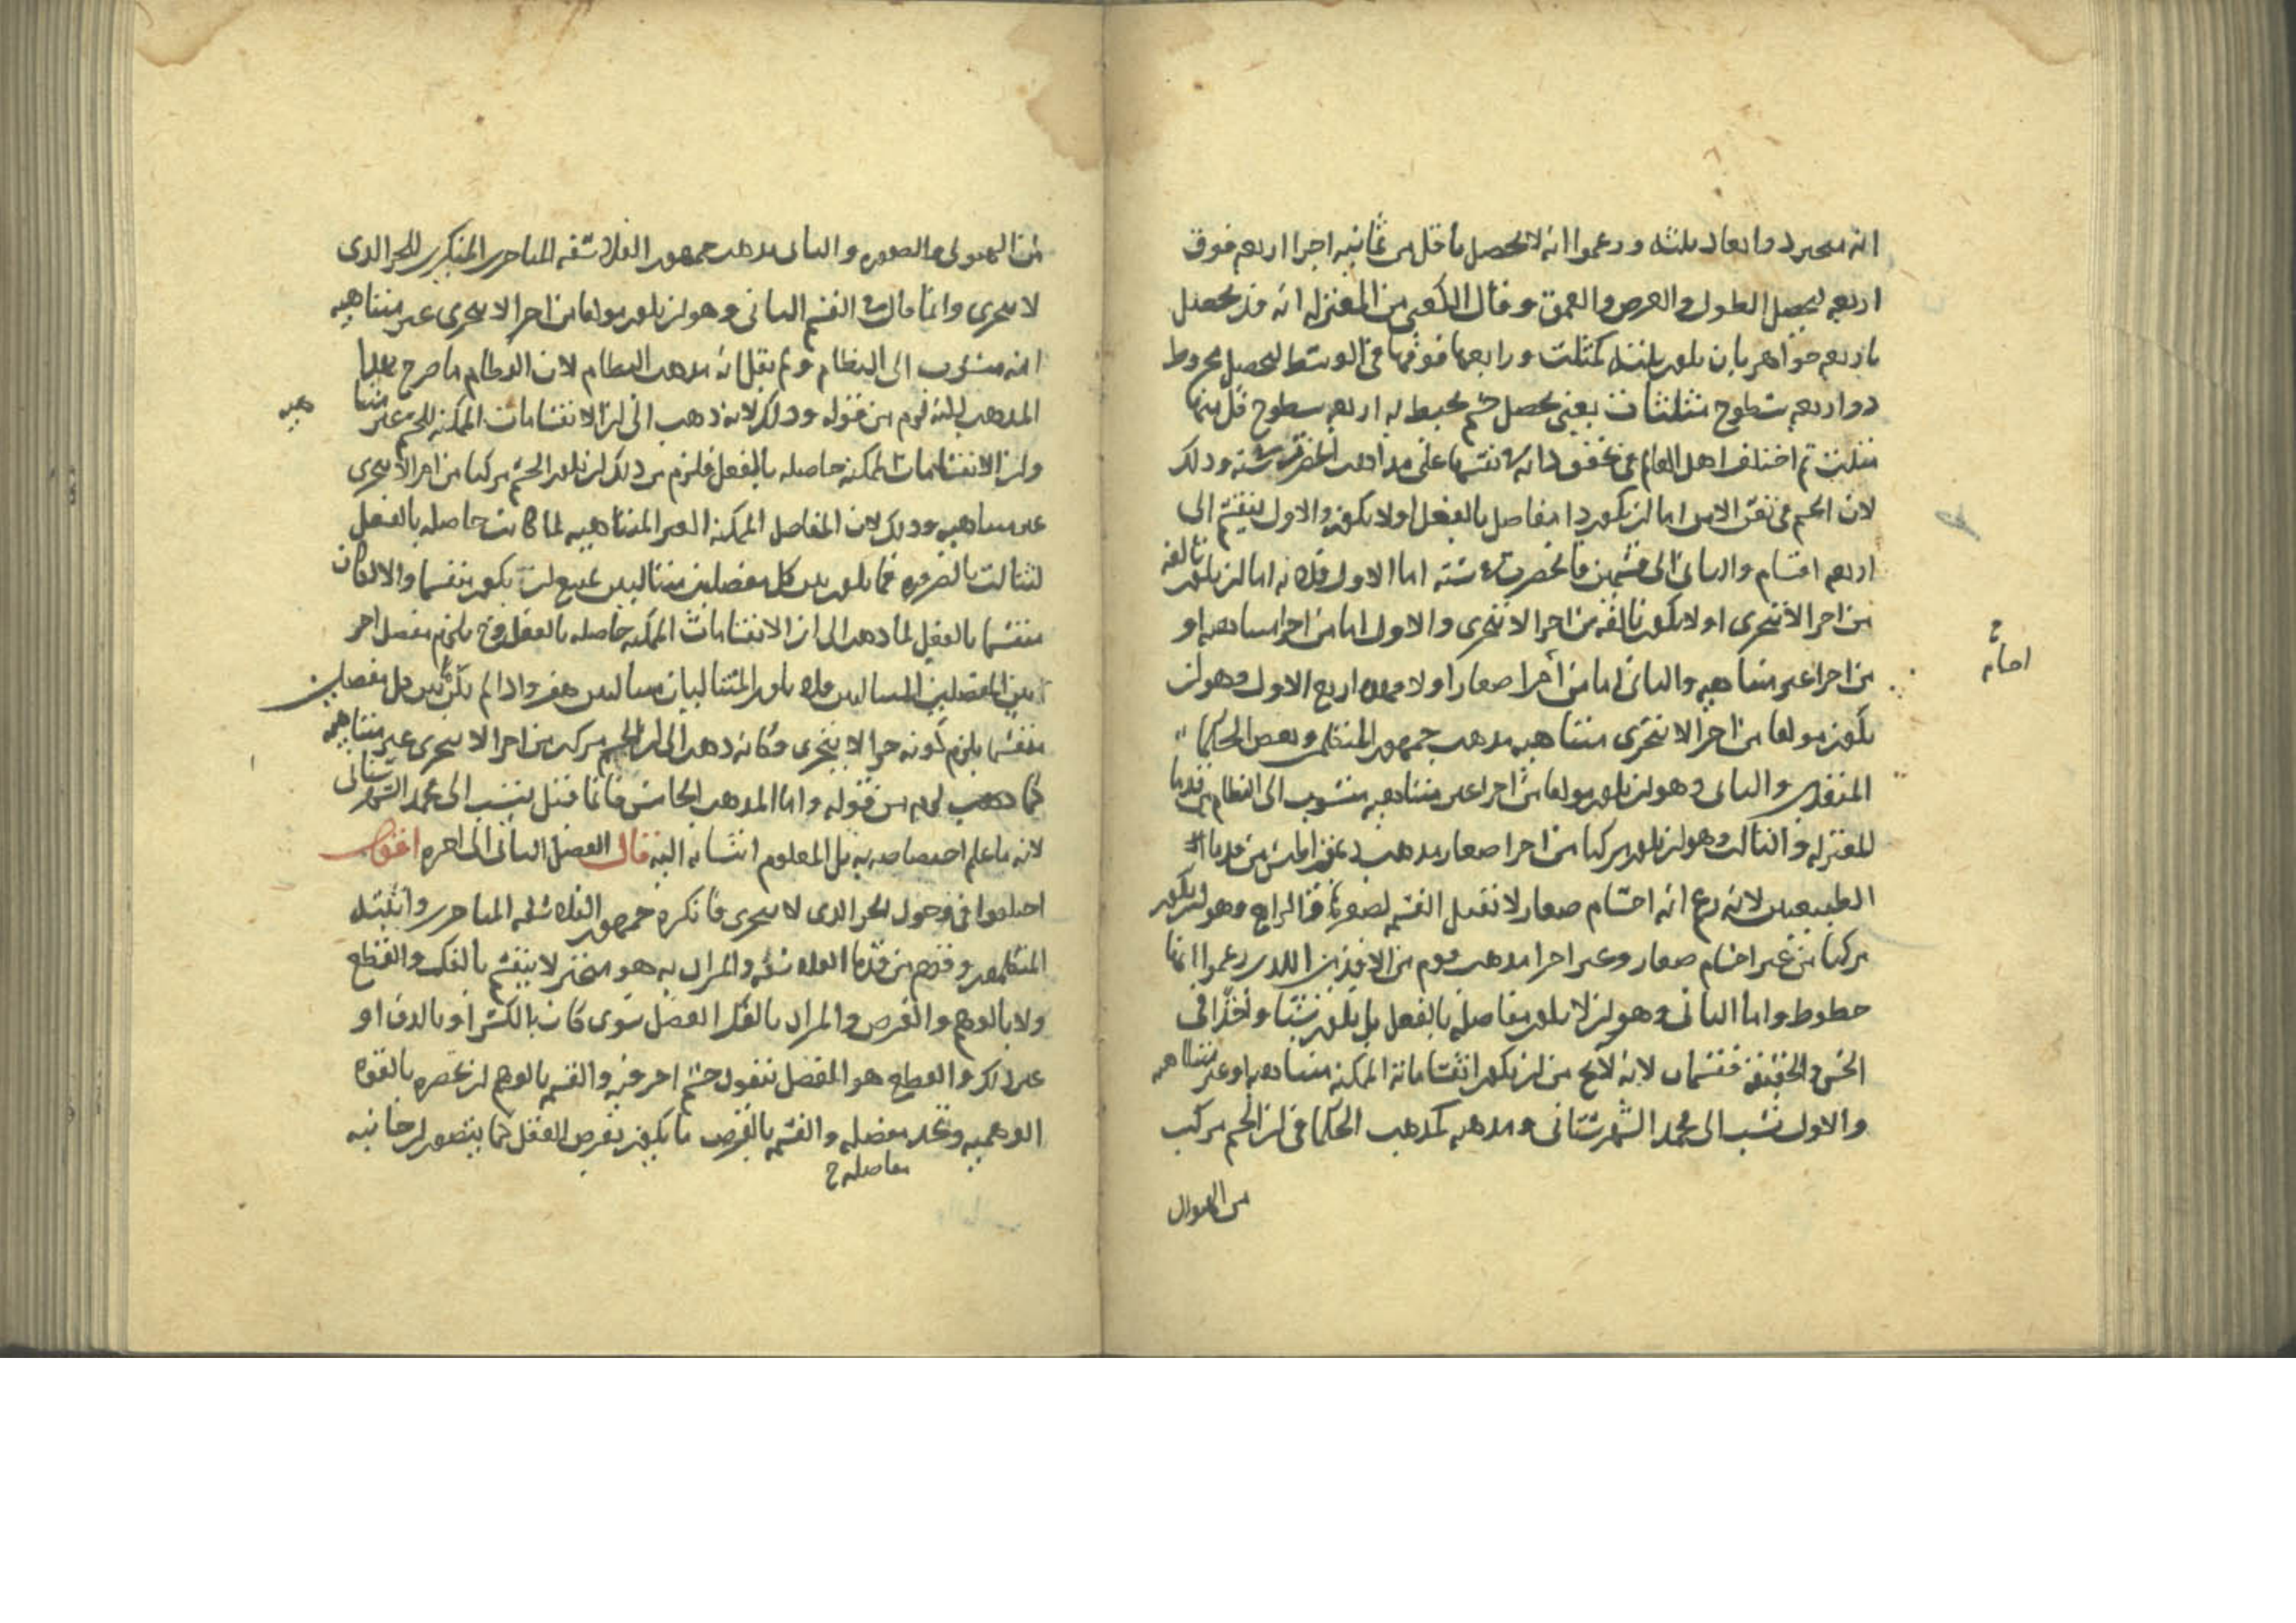 انه متحيز ذو ابعاد ثلثه وزعموا انه لا يحصل باقل من ثمانيه اجزا اربعه فوق
اربعه ليحصل الطول والعرض والعمق وقال الكعبي من المعتزله انه قد يحصل
باربعه جواهر بان يكون ثلثه كمثلث ورابعها فوقها في الوسط ليحصل مخروط
ذو اربعه سطوح مثلثات يعني يحصل جسم يحيط به اربعه سطوح كل منها
مثلث ثم اختلف اهل العالم في تحقق ذاته وانقسامها على مذاهب انحصرت في سته وذلك
لان الجسم في نفس الامر اما ان يكون ذا مفاصل بالفعل او لا يكون والاول ينقسم الى
اربعه اقسام والثاني الى قسمين فانحصرت في سته اما الاول فلانه اما ان يكون تالفه
من اجزا لا تتجزى او لا يكون تالفه من اجزا لا تتجزى والاول اما من اجزا متناهيه او
من اجزا غير متناهيه والثاني اما من اجزا صغار او لا فهذه اربع الاول وهو ان
يكون مولفا من اجزا لا تتجزى متناهيه مذهب جمهور المتكلمين وبعض الحكما
المتقدمين والثاني وهو ان يكون مولفا من اجزا غير متناهيه منسوب الى النظام من قدما
المعتزله والثالث وهو ان يكون مركبا من اجزا صغار مذهب ذيمقراطيس من قدما
الطبيعيين لانه زعم انه اجسام صغار لا تقبل القسمه لصغرها والرابع وهو ان يكون
مركبا من غير اجسام صغار وغير اجزا مذهب قوم من الاقدمين الذين زعموا انها
خطوط واما الثاني وهو ان لا يكون مفاصله بالفعل بل يكون شيا واحدا في
الحس والحقيقه فقسمان لانه لا يخ من ان يكون انقساماته الممكنه متناهيه او غير متناهيه
والاول نسب الى محمد الشهرستاني ومذهبه كمذهب الحكما في ان الجسم مركب
من الهيولى
احسامه
من الهيولى والصوره والثاني مذهب جمهور الفلاسفه المتاخرين المنكرين للجز الذي
لا يتجزى وانما قال في القسم الثاني وهو ان يكون مولفا من اجزا لا يتجزى غير متناهيه
انه منسوب الى النظام ولم يقل انه مذهب النظام لان النظام ما صرح بهذا
المذهب لكنه لزم من قوله وذلك لانه ذهب الى ان الانقسامات الممكنه للجسم غير متنا هيه
وان الانقسامات الممكنه حاصله بالفعل فلزم من ذلك ان يكون الجسم مركبا من اجزا لا يتجزى
غير متناهيه وذلك لان المفاصل الممكنه الغير المتناهيه لما كانت حاصله بالفعل
لتتالت بالضروره فما يكون بين كل مفصلين متتاليين يمتنع ان يكون منقسما والا لكان
منقسما بالفعل لما ذهب الى ان الانقسامات الممكنه حاصله بالفعل وح يلزم مفصل اخر
بين المفصلين المتتاليين فلا يكون المتتاليان متتاليين هف واذا لم يكن بين كل مفصلين
منقسما يلزم كونه جزا لا يتجزى وكانه ذهب الى ان الجسم مركب من اجزا لا يتجزى غير متناهيه
كما ذهب لزم من قوله واما المذهب الخامس فانما قيل ينسب الى محمد الشهرستاني
لانه ما علم اختصاصه به بل المعلوم انتسابه اليه قال الفصل الثاني الى اخره اقول
اختلفوا في وجود الجز الذي لا يتجزى فانكره جمهور الفلاسفه المتاخرين واثبته
المتكلمون وقوم من قدما الفلاسفه والمراد به هو متحيز لا ينقسم بالفك والقطع
ولا بالوهم والفرض والمراد بالفك الفصل سوى كان بالكسر او بالدق او
غير ذلك والقطع هو الفصل بنفوذ جسم اخر فيه والقسمه بالوهم ان تحضره بالقوه
الوهميه وتحد مفصله والقسمه بالفرض ما يكون بفرض العقل كما يتصور ان جانبيه
مفاصله خ